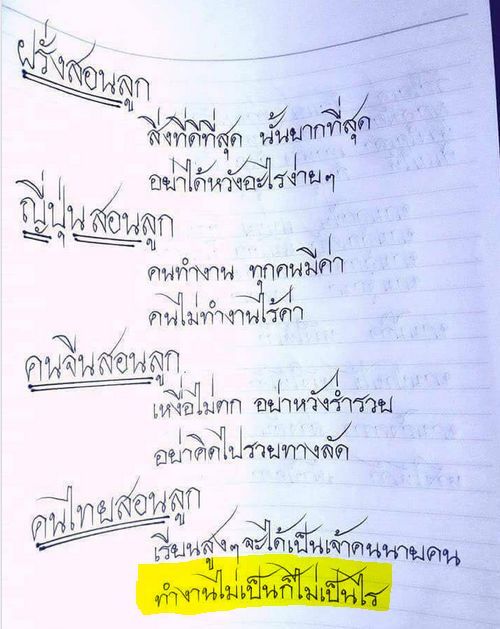 ฝรั่งสอนลูก
สิ่งที่ดีที่สุด นั้นยากที่สุด
อย่าได้หวังอะไรง่ายๆ
ญี่ปุ่นสอนลูก
คนทำงาน ทุกคนมีค่า
คนไม่ทำงานไร้ค่า
คนจีนสอนลูก
เหงื่อไม่ตก อย่าหวังร่ำรวย
อย่าคิดไปรวยทางลัด
คนไทยสอนลูก
เรียนสูงๆจะได้เป็นเจ้าคนนายคน
ทำงานไม่เป็นก็ไม่เป็นไร